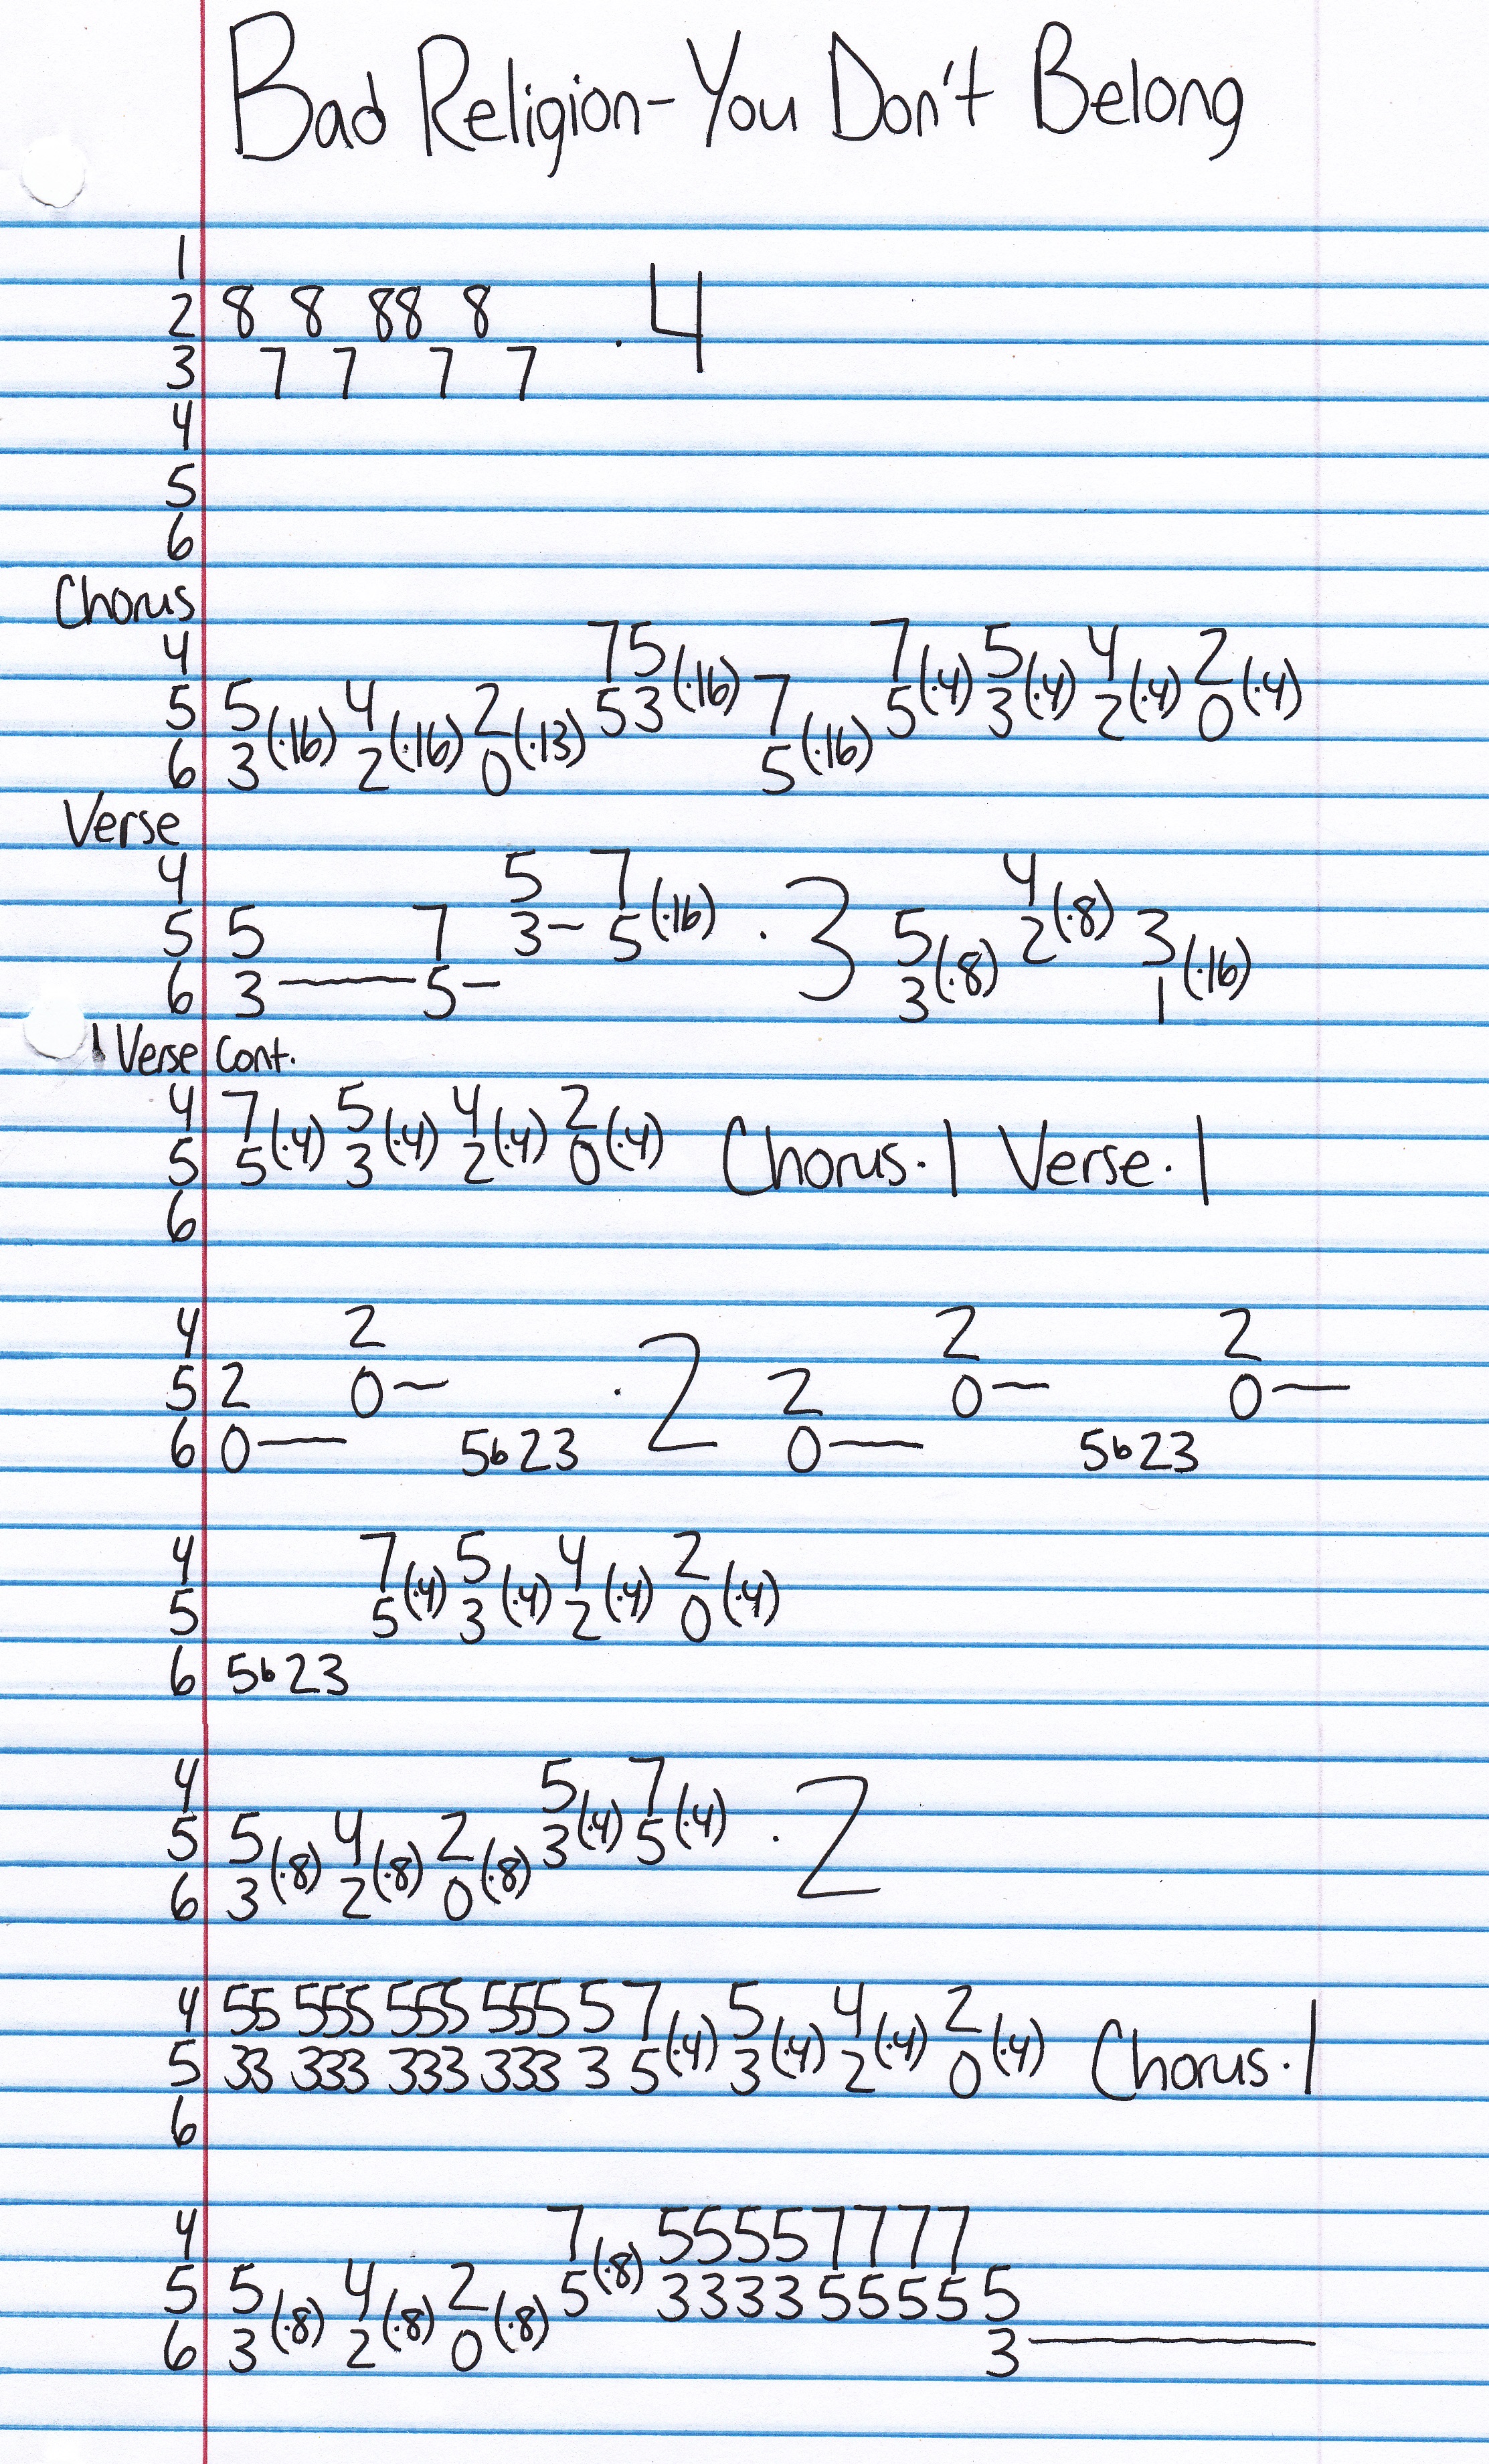 Bad Religion-You Don't Belong
1
2 8 8 88 8 .4
3 7 7 7 7
4
5
6
Chorus
4 75(·16) 7(·4) 5(·4) 4(·4) 2(·4)
5 5(·16) 4(·16) 2(·13) 53 7(·16) 5 3 2 0
6 3 2 0 5
Verse
4 5 7(·16) 4(·8)
5 5 7 3– 5 ·3 5(·8) 2 3(·16)
6 3—— 5– 3 1
1 Verse Cont.
4 7(·4) 5(·4) 4(·4) 2(·4)
5 5 3 2 0 Chorus·1 Verse·1
6
4 2 2 2
5 2 0– ·2 2 0– 0—
6 0— 5b23 0— 5b23
4 7(·4) 5(·4) 4(·4) 2(·4)
5 5 3 2 0
6 5b23
4 5(·4) 7(·4)
5 5(·8) 4(·8) 2(·8) 3 5 ·2
6 3 2 0
4 55 555 555 555 5 7(·4) 5(·4) 4(·4) 2(·4)
5 33 333 333 333 3 5 3 2 0 Chorus·1
6
4 7(·8) 55557777
5 5(·8) 4(·8) 2(·8) 5 333355555
6 3 2 0 3————